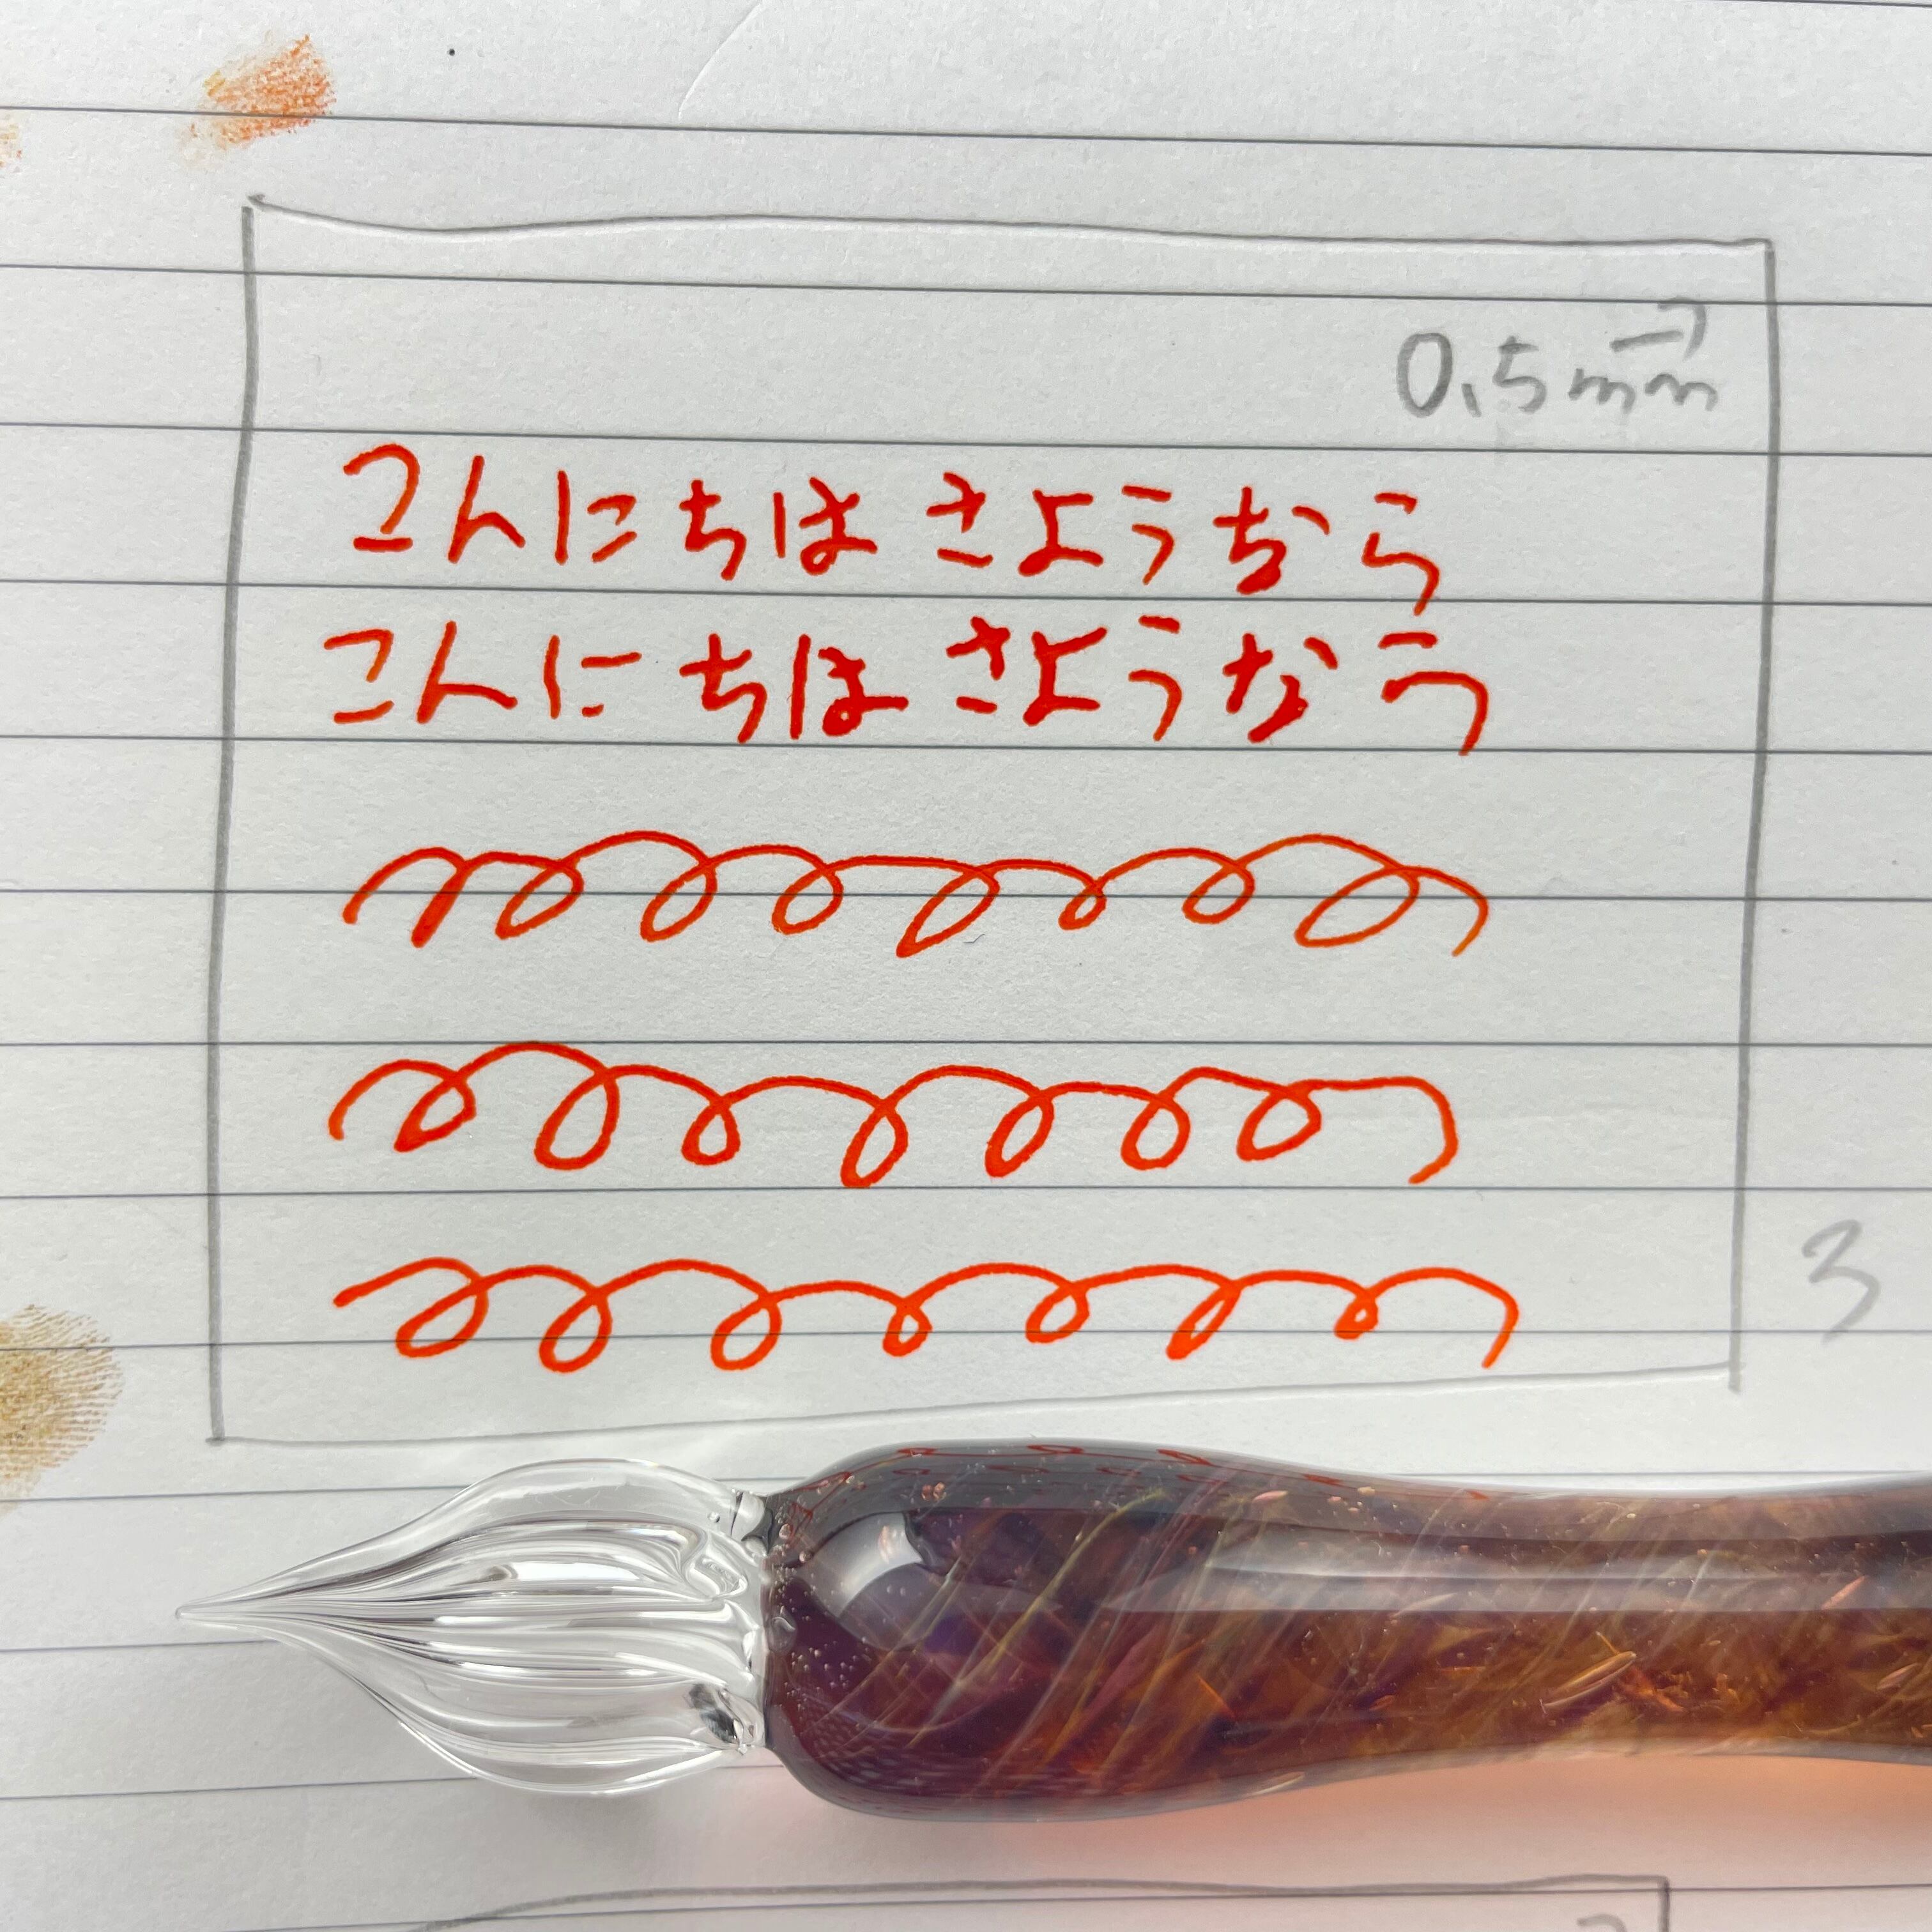 0.5mm
こんにちは さようなら
こんにちは さようなら
3